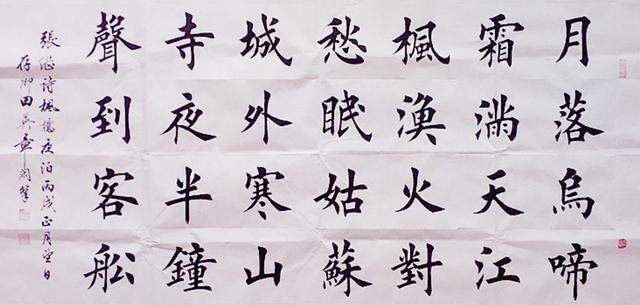 月落烏啼
霜滿天江
楓漁火對
愁眠姑蘇
城外寒山
寺夜半鐘
聲到客船
張继詩楓橋夜泊丙戌正月望日
存卿田英章開筆